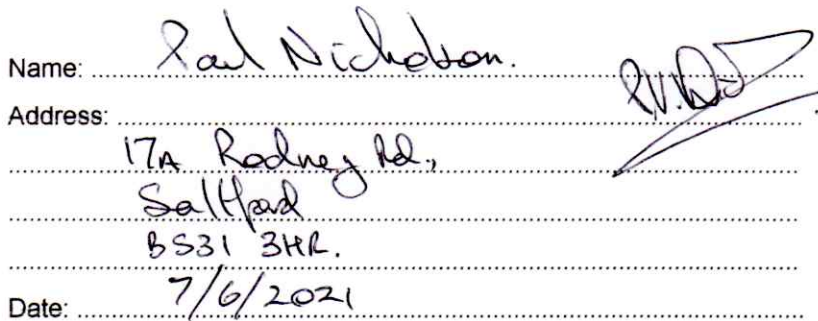 Name: Paul Nicholson.
Address:
17A Rodney Rd.,
Saltford
BS31 3HR.
Date: 7/6/2021